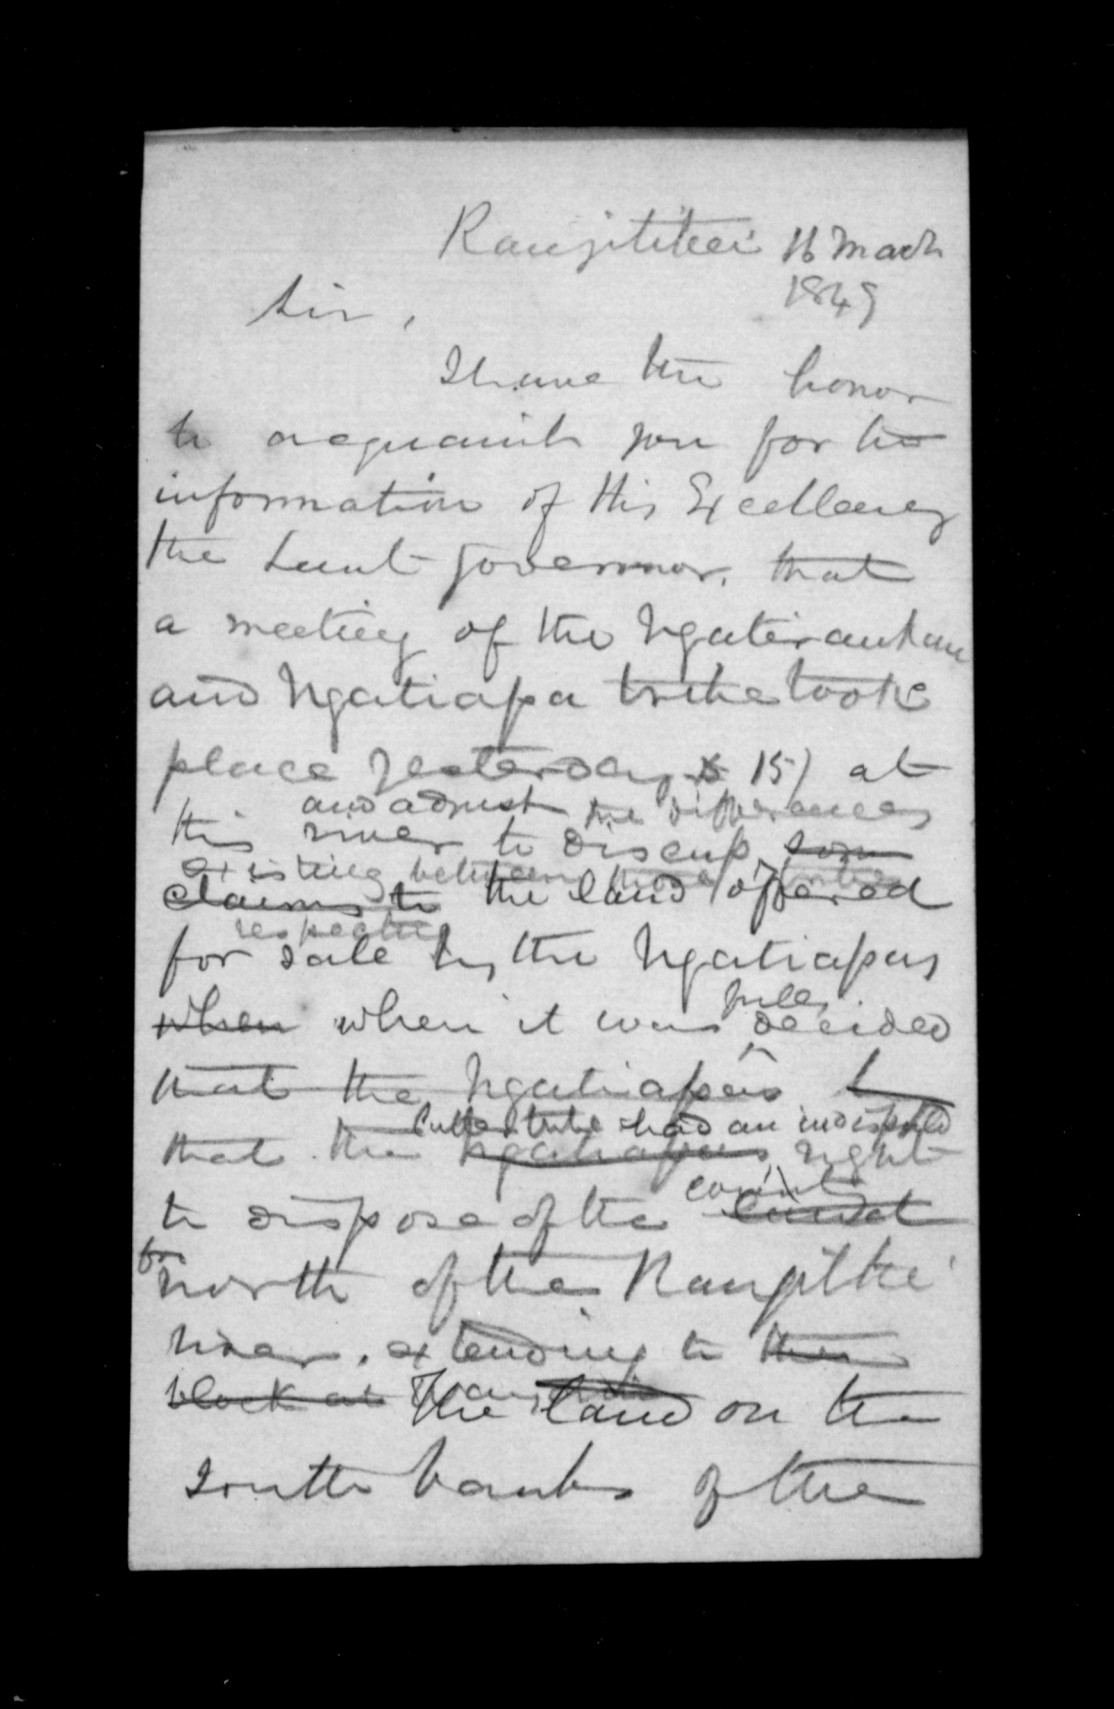 Rangitikei 16 March
1849
Sir,
I have the honor
to acquaint you for the
information of His Excellency
the Lieut Governor. that
a meeting of the Ngatiraukau
and Ngatiapa tribe took
place yesterday 15) at
and adjust the differences
this river to discuss some
existing between those tribes
claims to the land offered
respecting
for sale by the Ngatiapas
fully
when when it was decided
that the Ngatiapas
latter tribe had an indisputed
that the Ngatiapas right
country
to dispose of the
for
north of the Rangitikei
river. extending to the
block at the land on the
south banks of the